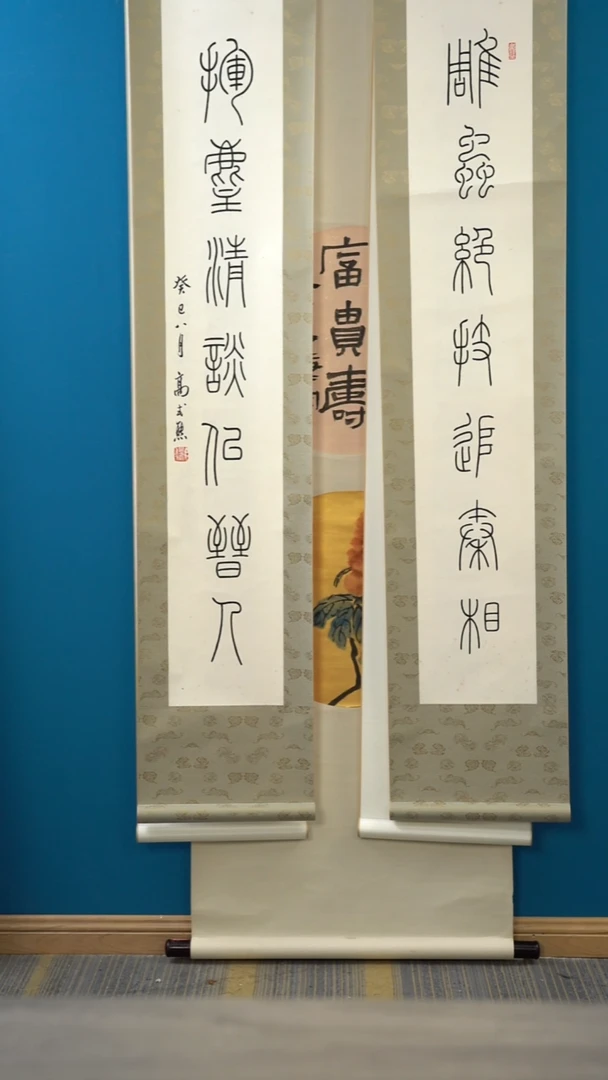 雕蟲絕技追秦相
揮麈清談佀晉人
癸巳八月 高式熊
富貴壽